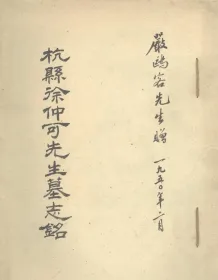 嚴鷗客先生贈 一九五〇年二月
杭縣徐仲可先生墓志銘